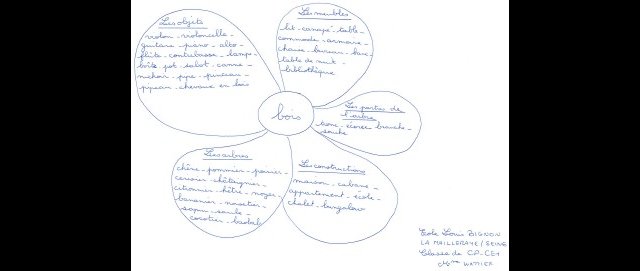 Les objets
violon - violoncelle -
guitare - piano - alto -
flûte - contrebasse - lampe -
boîte - pot - sabot - canne -
nichoir - pipe - pinceau -
pipeau - chevaux en bois
Les meubles
lit - canapé - table -
commode - armoire -
chaise - bureau - banc -
table de nuit -
bibliothèque
bois
Les parties de
l'arbre
tronc - écorce - branche -
souche
Les arbres
chêne - pommier - poirier -
cerisier - châtaignier -
citronnier - hêtre - noyer -
bananier - noisetier -
sapin - saule -
cocotier - baobab
Les constructions
maison - cabane -
appartement - école -
chalet - bungalow
Ecole Louis BIGNON
LA MAILLERAYE / SEINE
Classe de CP-CE1
Mme